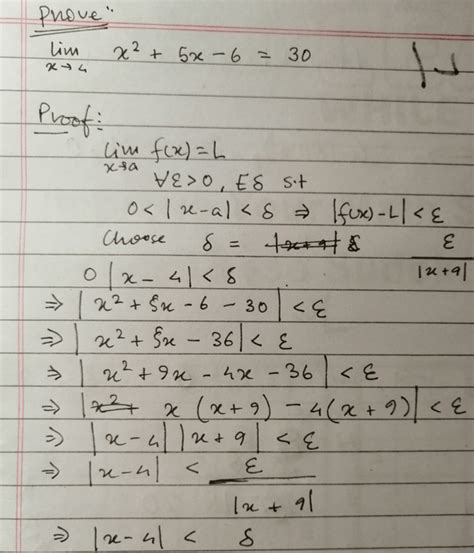 Prove:
lim x→4 x² + 5x - 6 = 30
Proof:
lim x→a f(x) = L
∀ε>0, Eδ s.t
0 < |x-a| < δ ⇒ |f(x)-L| < ε
Choose δ = ε / |x+9|
0 |x - 4| < δ
⇒ |x² + 5x - 6 - 30| < ε
⇒ |x² + 5x - 36| < ε
⇒ |x² + 9x - 4x - 36| < ε
⇒ |x (x+9) - 4(x+9)| < ε
⇒ |x-4| |x+9| < ε
⇒ |x-4| < ε / |x+9|
⇒ |x-4| < δ